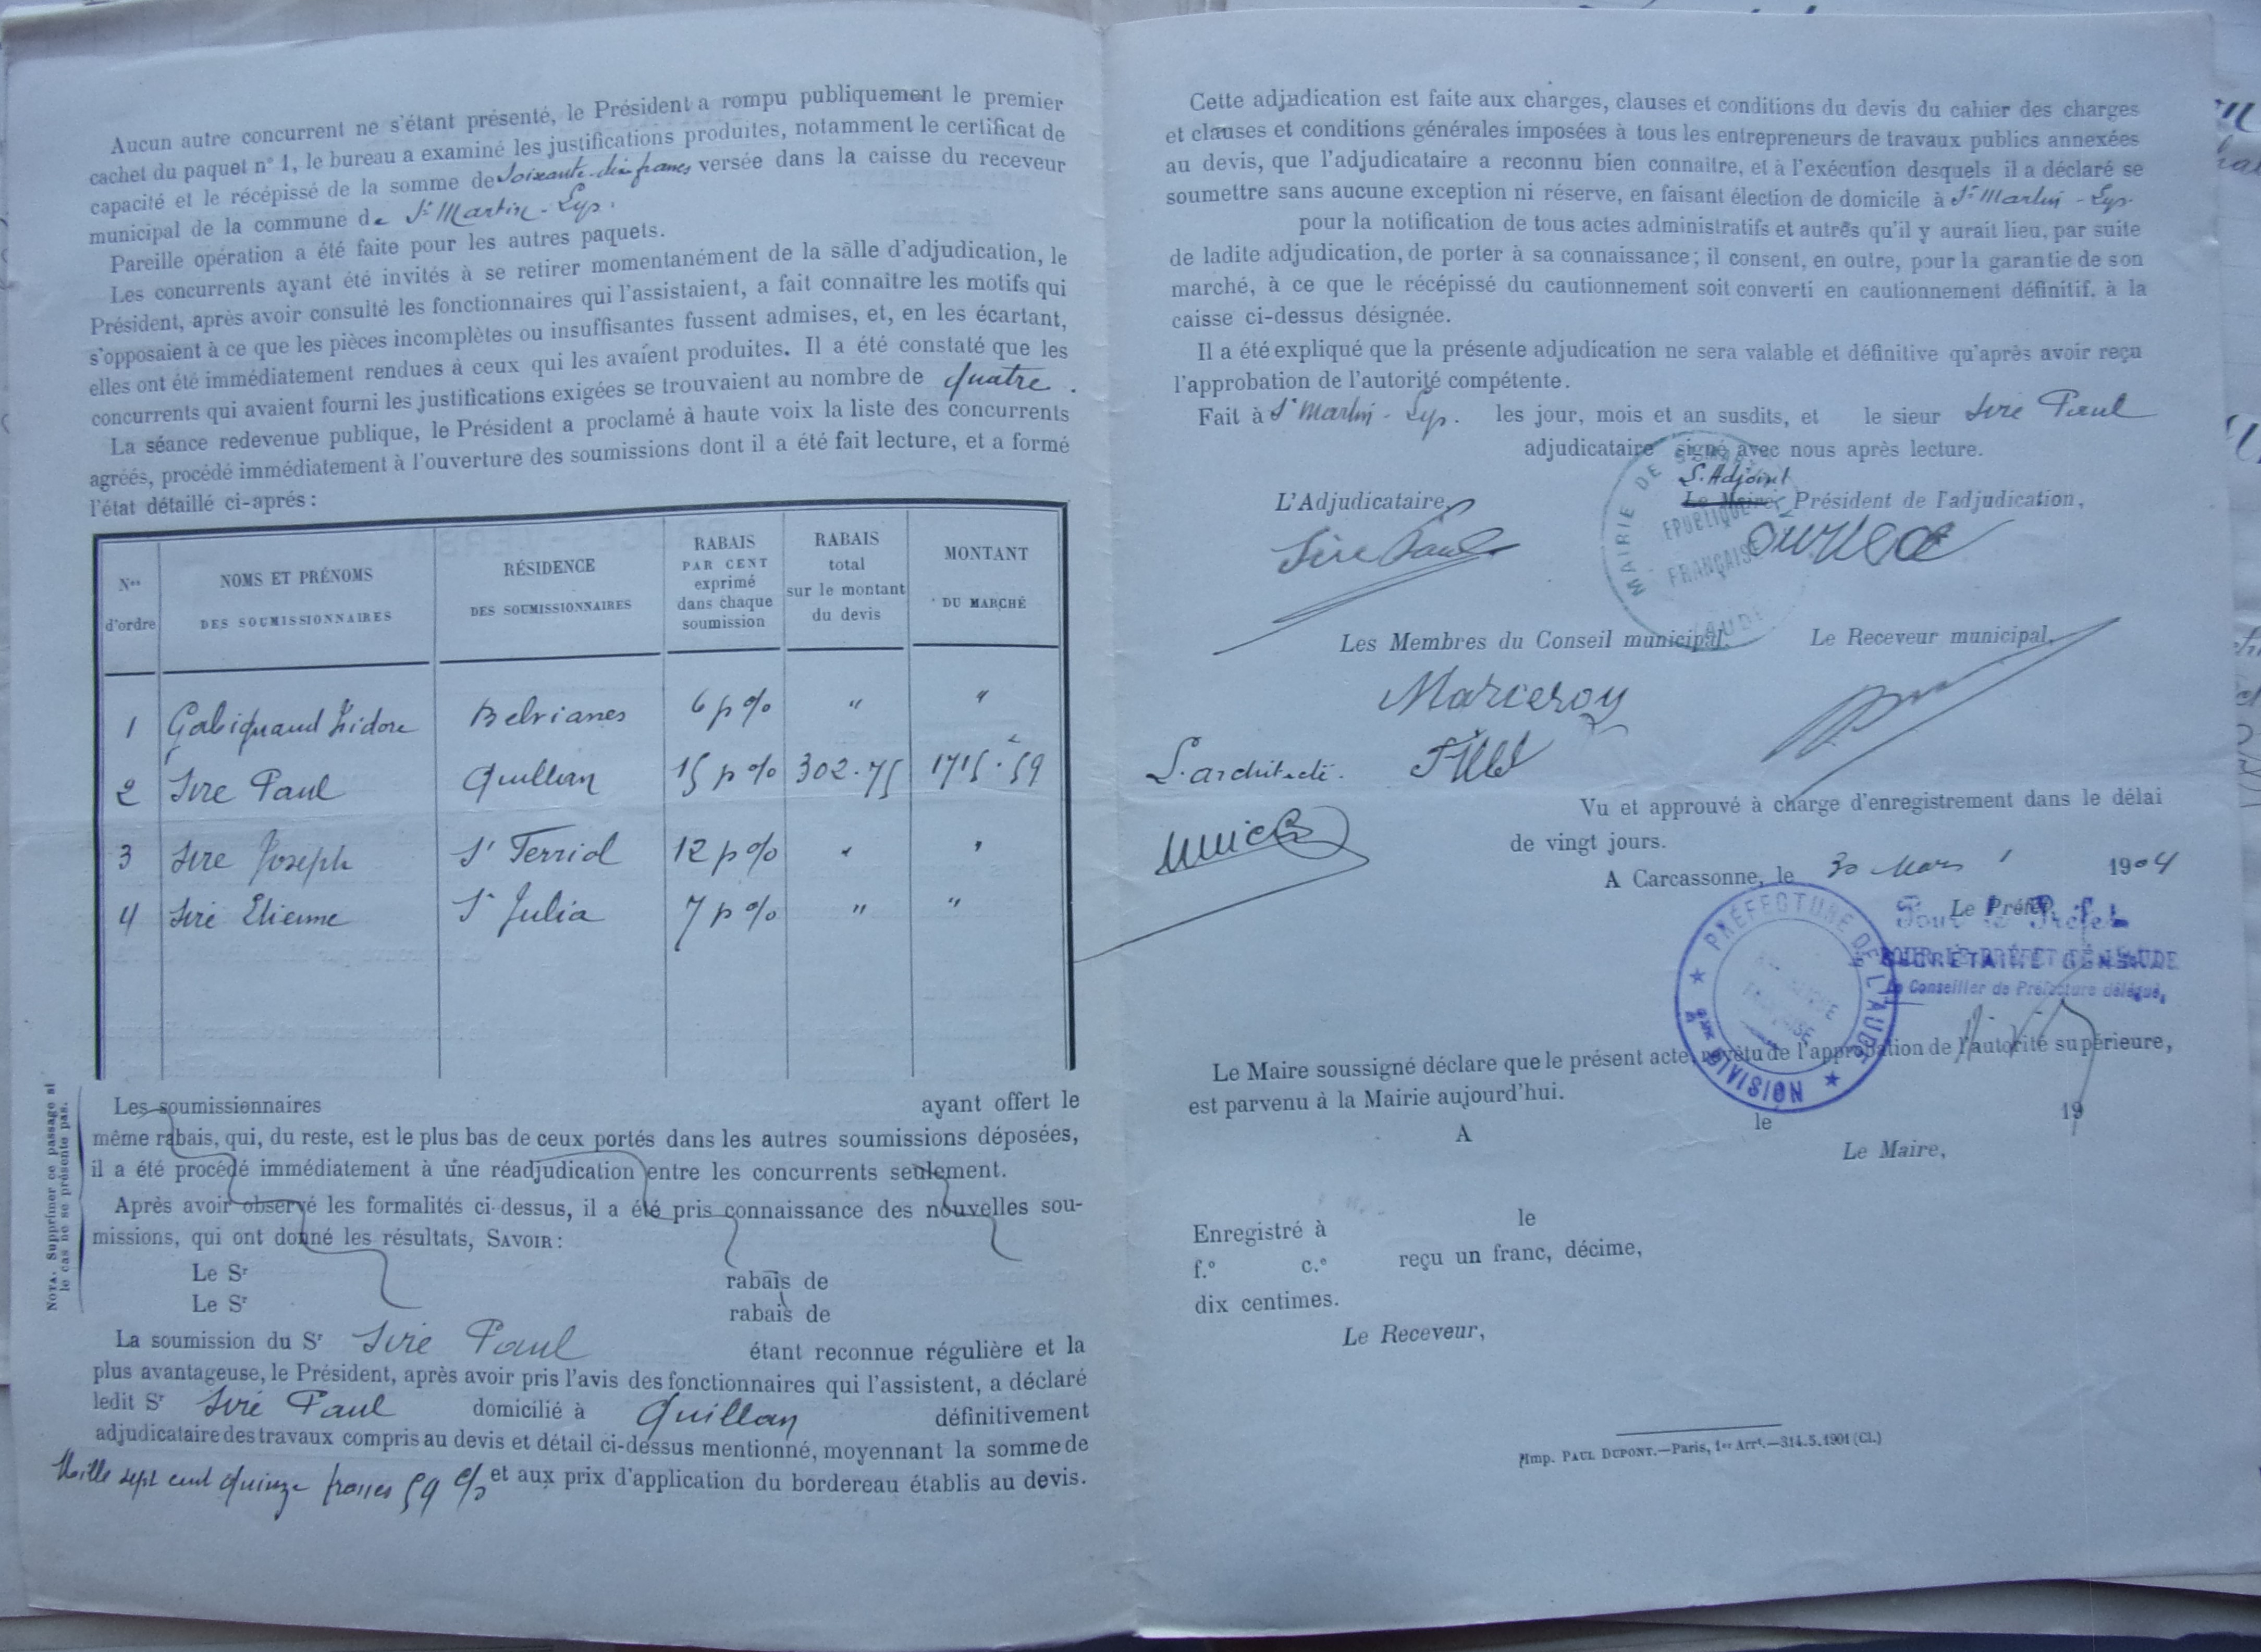 Aucun autre concurrent ne s'étant présenté, le Président a rompu publiquement le premier
cachet du paquet n° 1, le bureau a examiné les justifications produites, notamment le certificat de
capacité et le récépissé de la somme de Soixante-dix francs versée dans la caisse du receveur
municipal de la commune de St Martin-Lys.
Pareille opération a été faite pour les autres paquets.
Les concurrents ayant été invités à se retirer momentanément de la salle d'adjudication, le
Président, après avoir consulté les fonctionnaires qui l'assistaient, a fait connaitre les motifs qui
s'opposaient à ce que les pièces incomplètes ou insuffisantes fussent admises, et, en les écartant,
elles ont été immédiatement rendues à ceux qui les avaient produites. Il a été constaté que les
concurrents qui avaient fourni les justifications exigées se trouvaient au nombre de quatre.
La séance redevenue publique, le Président a proclamé à haute voix la liste des concurrents
agréés, procédé immédiatement à l'ouverture des soumissions dont il a été fait lecture, et a formé
l'état détaillé ci-aprés :
Nos d'ordre
NOMS ET PRÉNOMS DES SOUMISSIONNAIRES
RÉSIDENCE DES SOUMISSIONNAIRES
RABAIS PAR CENT exprimé dans chaque soumission
RABAIS total sur le montant du devis
MONTANT DU MARCHÉ
1 Isidore Belvianes 6 p % " "
2 Siré Paul Quillan 15 p % 302.75 1715.59
3 Siré Joseph St Ferriol 12 p % " "
4 Siré Etienne St Julia 7 p % " "
NOTA. Supprimer ce passage si
le cas ne se présente pas.
Les soumissionnaires ayant offert le
même rabais, qui, du reste, est le plus bas de ceux portés dans les autres soumissions déposées,
il a été procédé immédiatement à une réadjudication entre les concurrents seulement.
Après avoir observé les formalités ci-dessus, il a été pris connaissance des nouvelles sou-
missions, qui ont donné les résultats, SAVOIR :
Le Sr rabais de
Le Sr rabais de
La soumission du Sr Siré Paul étant reconnue régulière et la
plus avantageuse, le Président, après avoir pris l'avis des fonctionnaires qui l'assistent, a déclaré
ledit Sr Siré Paul domicilié à Quillan définitivement
adjudicataire des travaux compris au devis et détail ci-dessus mentionné, moyennant la somme de
Mille sept cent quinze francs 59 c/s et aux prix d'application du bordereau établis au devis.
Cette adjudication est faite aux charges, clauses et conditions du devis du cahier des charges
et clauses et conditions générales imposées à tous les entrepreneurs de travaux publics annexées
au devis, que l'adjudicataire a reconnu bien connaitre, et à l'exécution desquels il a déclaré se
soumettre sans aucune exception ni réserve, en faisant élection de domicile à St Martin-Lys.
pour la notification de tous actes administratifs et autres qu'il y aurait lieu, par suite
de ladite adjudication, de porter à sa connaissance ; il consent, en outre, pour la garantie de son
marché, à ce que le récépissé du cautionnement soit converti en cautionnement définitif, à la
caisse ci-dessus désignée.
Il a été expliqué que la présente adjudication ne sera valable et définitive qu'après avoir reçu
l'approbation de l'autorité compétente.
Fait à St Martin-Lys. les jour, mois et an susdits, et le sieur Siré Paul
adjudicataire signé avec nous après lecture.
L'Adjoint
L'Adjudicataire, Le Maire, Président de l'adjudication,
Siré Paul
MAIRIE DE
RÉPUBLIQUE
FRANÇAISE
AUDE
Les Membres du Conseil municipal, Le Receveur municipal,
Marceroy
L'architecte.
Vu et approuvé à charge d'enregistrement dans le délai
de vingt jours.
A Carcassonne, le 30 Mars 1904
Le Préfet,
Pour le Préfet
SECRÉTAIRE GÉNÉRAL
Le Conseiller de Préfecture délégué,
PRÉFECTURE DE L'AUDE
DIVISION
Le Maire soussigné déclare que le présent acte, revêtu de l'approbation de l'autorité supérieure,
est parvenu à la Mairie aujourd'hui.
A le 19
Le Maire,
Enregistré à le
f.° c.° reçu un franc, décime,
dix centimes.
Le Receveur,
Imp. PAUL DUPONT.—Paris, 1er Arrt.—314.5.1901 (Cl.)